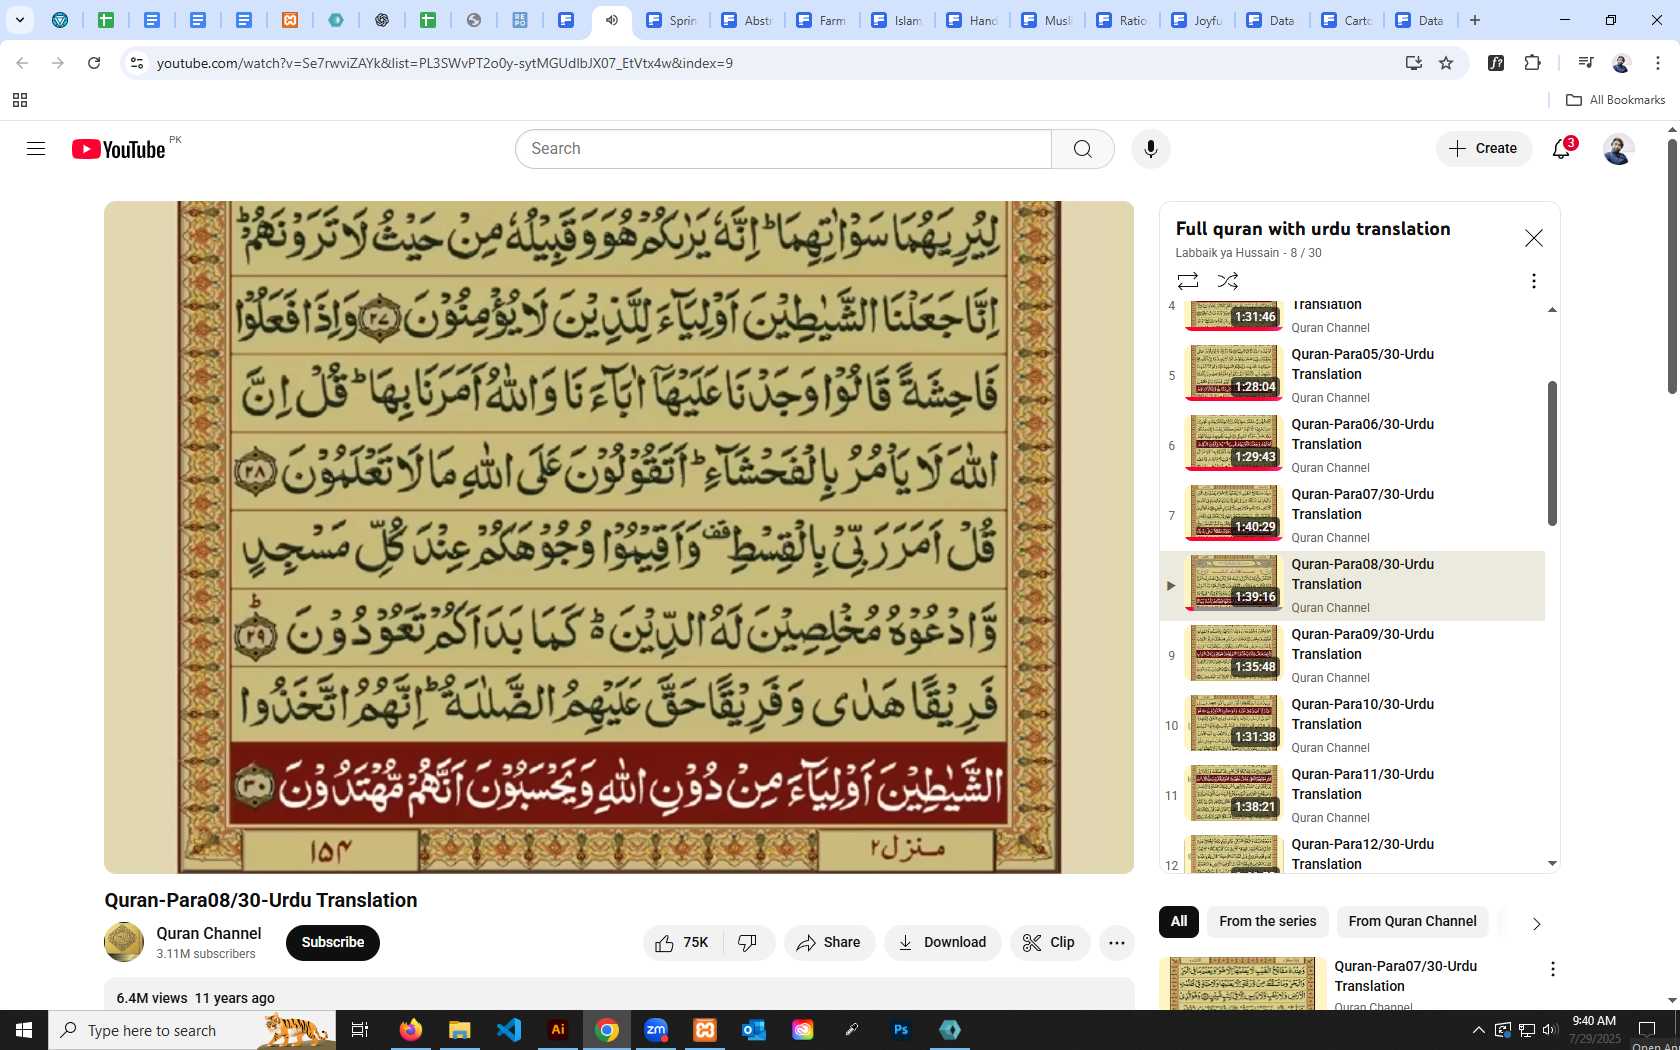 Sprin
Abstr
Farm
Islam
Hand
Musli
Ratio
Joyfu
Data
Carto
Data
youtube.com/watch?v=Se7rwviZAYk&list=PL3SWvPT2o0y-sytMGUdIbJX07_EtVtx4w&index=9
All Bookmarks
YouTube PK
Search
Create
3
لِيُرِيَهُمَا سَوْاٰتِهِمَا ؕ اِنَّهٗ يَرٰىكُمْ هُوَ وَقَبِيْلُهٗ مِنْ حَيْثُ لَا تَرَوْنَهُمْ ؕ
اِنَّا جَعَلْنَا الشَّيٰطِيْنَ اَوْلِيَآءَ لِلَّذِيْنَ لَا يُؤْمِنُوْنَ ۝۲۷ وَاِذَا فَعَلُوْا
فَاحِشَةً قَالُوْا وَجَدْنَا عَلَيْهَاۤ اٰبَآءَنَا وَاللّٰهُ اَمَرَنَا بِهَا ؕ قُلْ اِنَّ
اللّٰهَ لَا يَاْمُرُ بِالْفَحْشَآءِ ؕ اَتَقُوْلُوْنَ عَلَى اللّٰهِ مَا لَا تَعْلَمُوْنَ ۝۲۸
قُلْ اَمَرَ رَبِّيْ بِالْقِسْطِ قف وَاَقِيْمُوْا وُجُوْهَكُمْ عِنْدَ كُلِّ مَسْجِدٍ
وَّادْعُوْهُ مُخْلِصِيْنَ لَهُ الدِّيْنَ ؕ كَمَا بَدَاَكُمْ تَعُوْدُوْنَ ؕ ۝۲۹
فَرِيْقًا هَدٰى وَفَرِيْقًا حَقَّ عَلَيْهِمُ الضَّلٰلَةُ ؕ اِنَّهُمُ اتَّخَذُوا
الشَّيٰطِيْنَ اَوْلِيَآءَ مِنْ دُوْنِ اللّٰهِ وَيَحْسَبُوْنَ اَنَّهُمْ مُّهْتَدُوْنَ ۝۳۰
منزل۲
۱۵۴
Quran-Para08/30-Urdu Translation
Quran Channel
3.11M subscribers
Subscribe
75K
Share
Download
Clip
6.4M views 11 years ago
Full quran with urdu translation
Labbaik ya Hussain - 8 / 30
4
1:31:46
Translation
Quran Channel
5
1:28:04
Quran-Para05/30-Urdu
Translation
Quran Channel
6
1:29:43
Quran-Para06/30-Urdu
Translation
Quran Channel
7
1:40:29
Quran-Para07/30-Urdu
Translation
Quran Channel
1:39:16
Quran-Para08/30-Urdu
Translation
Quran Channel
9
1:35:48
Quran-Para09/30-Urdu
Translation
Quran Channel
10
1:31:38
Quran-Para10/30-Urdu
Translation
Quran Channel
11
1:38:21
Quran-Para11/30-Urdu
Translation
Quran Channel
12
Quran-Para12/30-Urdu
Translation
All
From the series
From Quran Channel
Quran-Para07/30-Urdu
Translation
Quran Channel
Type here to search
9:40 AM
7/29/2025